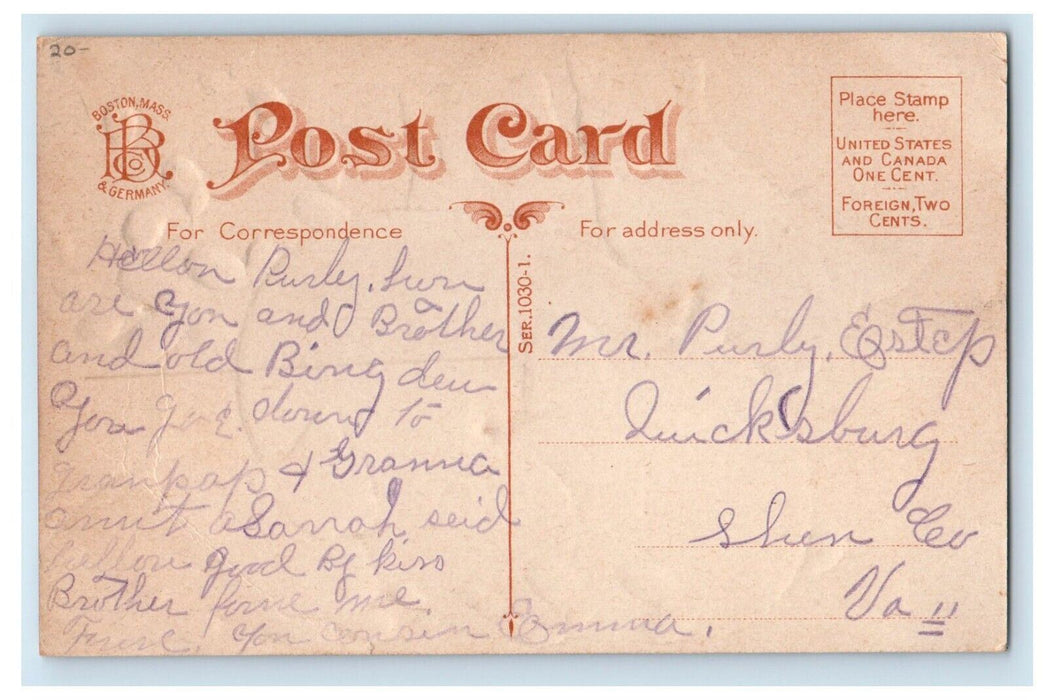 20-
BOSTON, MASS.
RB Co
& GERMANY.
Post Card
Place Stamp
here.
UNITED STATES
AND CANADA
ONE CENT.
FOREIGN, TWO
CENTS.
For Correspondence
For address only.
SER. 1030-1.
Hellon Purly, how
are you and Brother
and old Bing
You down to
granpap & Granna
annt Sarrah seid
hellou good By kiss
Brother forne me.
From, you consin Emma.
Mr. Purly, Estep
Quicksburg
Shen Co
Va "